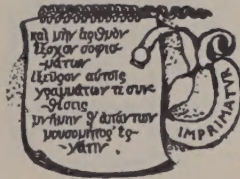 καὶ μὴν ἀριθμὸν
ἔξοχον σοφισ-
μάτων
ἐξεῦρον αὐτοῖς
γραμμάτων τε συν-
θέσεις
μνήμην θ' ἁπάντων
μουσομήτορ' ἐρ-
γάτιν.
IMPRIMATUR